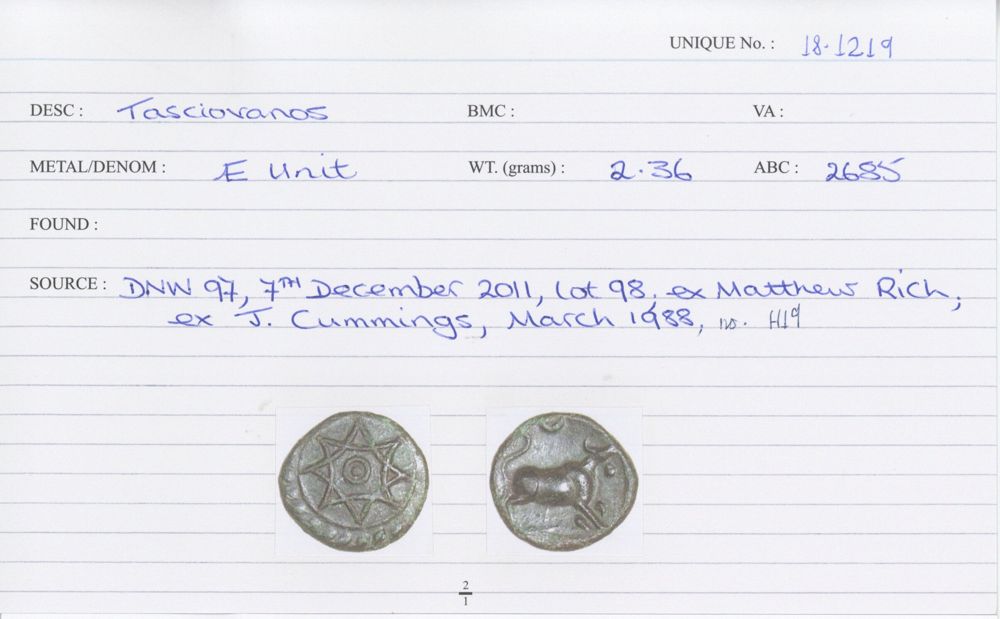 UNIQUE No. : 18.1219
DESC : Tasciovanos BMC : VA :
METAL/DENOM : Æ Unit WT. (grams) : 2.36 ABC : 2685
FOUND :
SOURCE : DNW 97, 7TH December 2011, lot 98, ex Matthew Rich,
ex J. Cummings, March 1988, no. H19
2
1